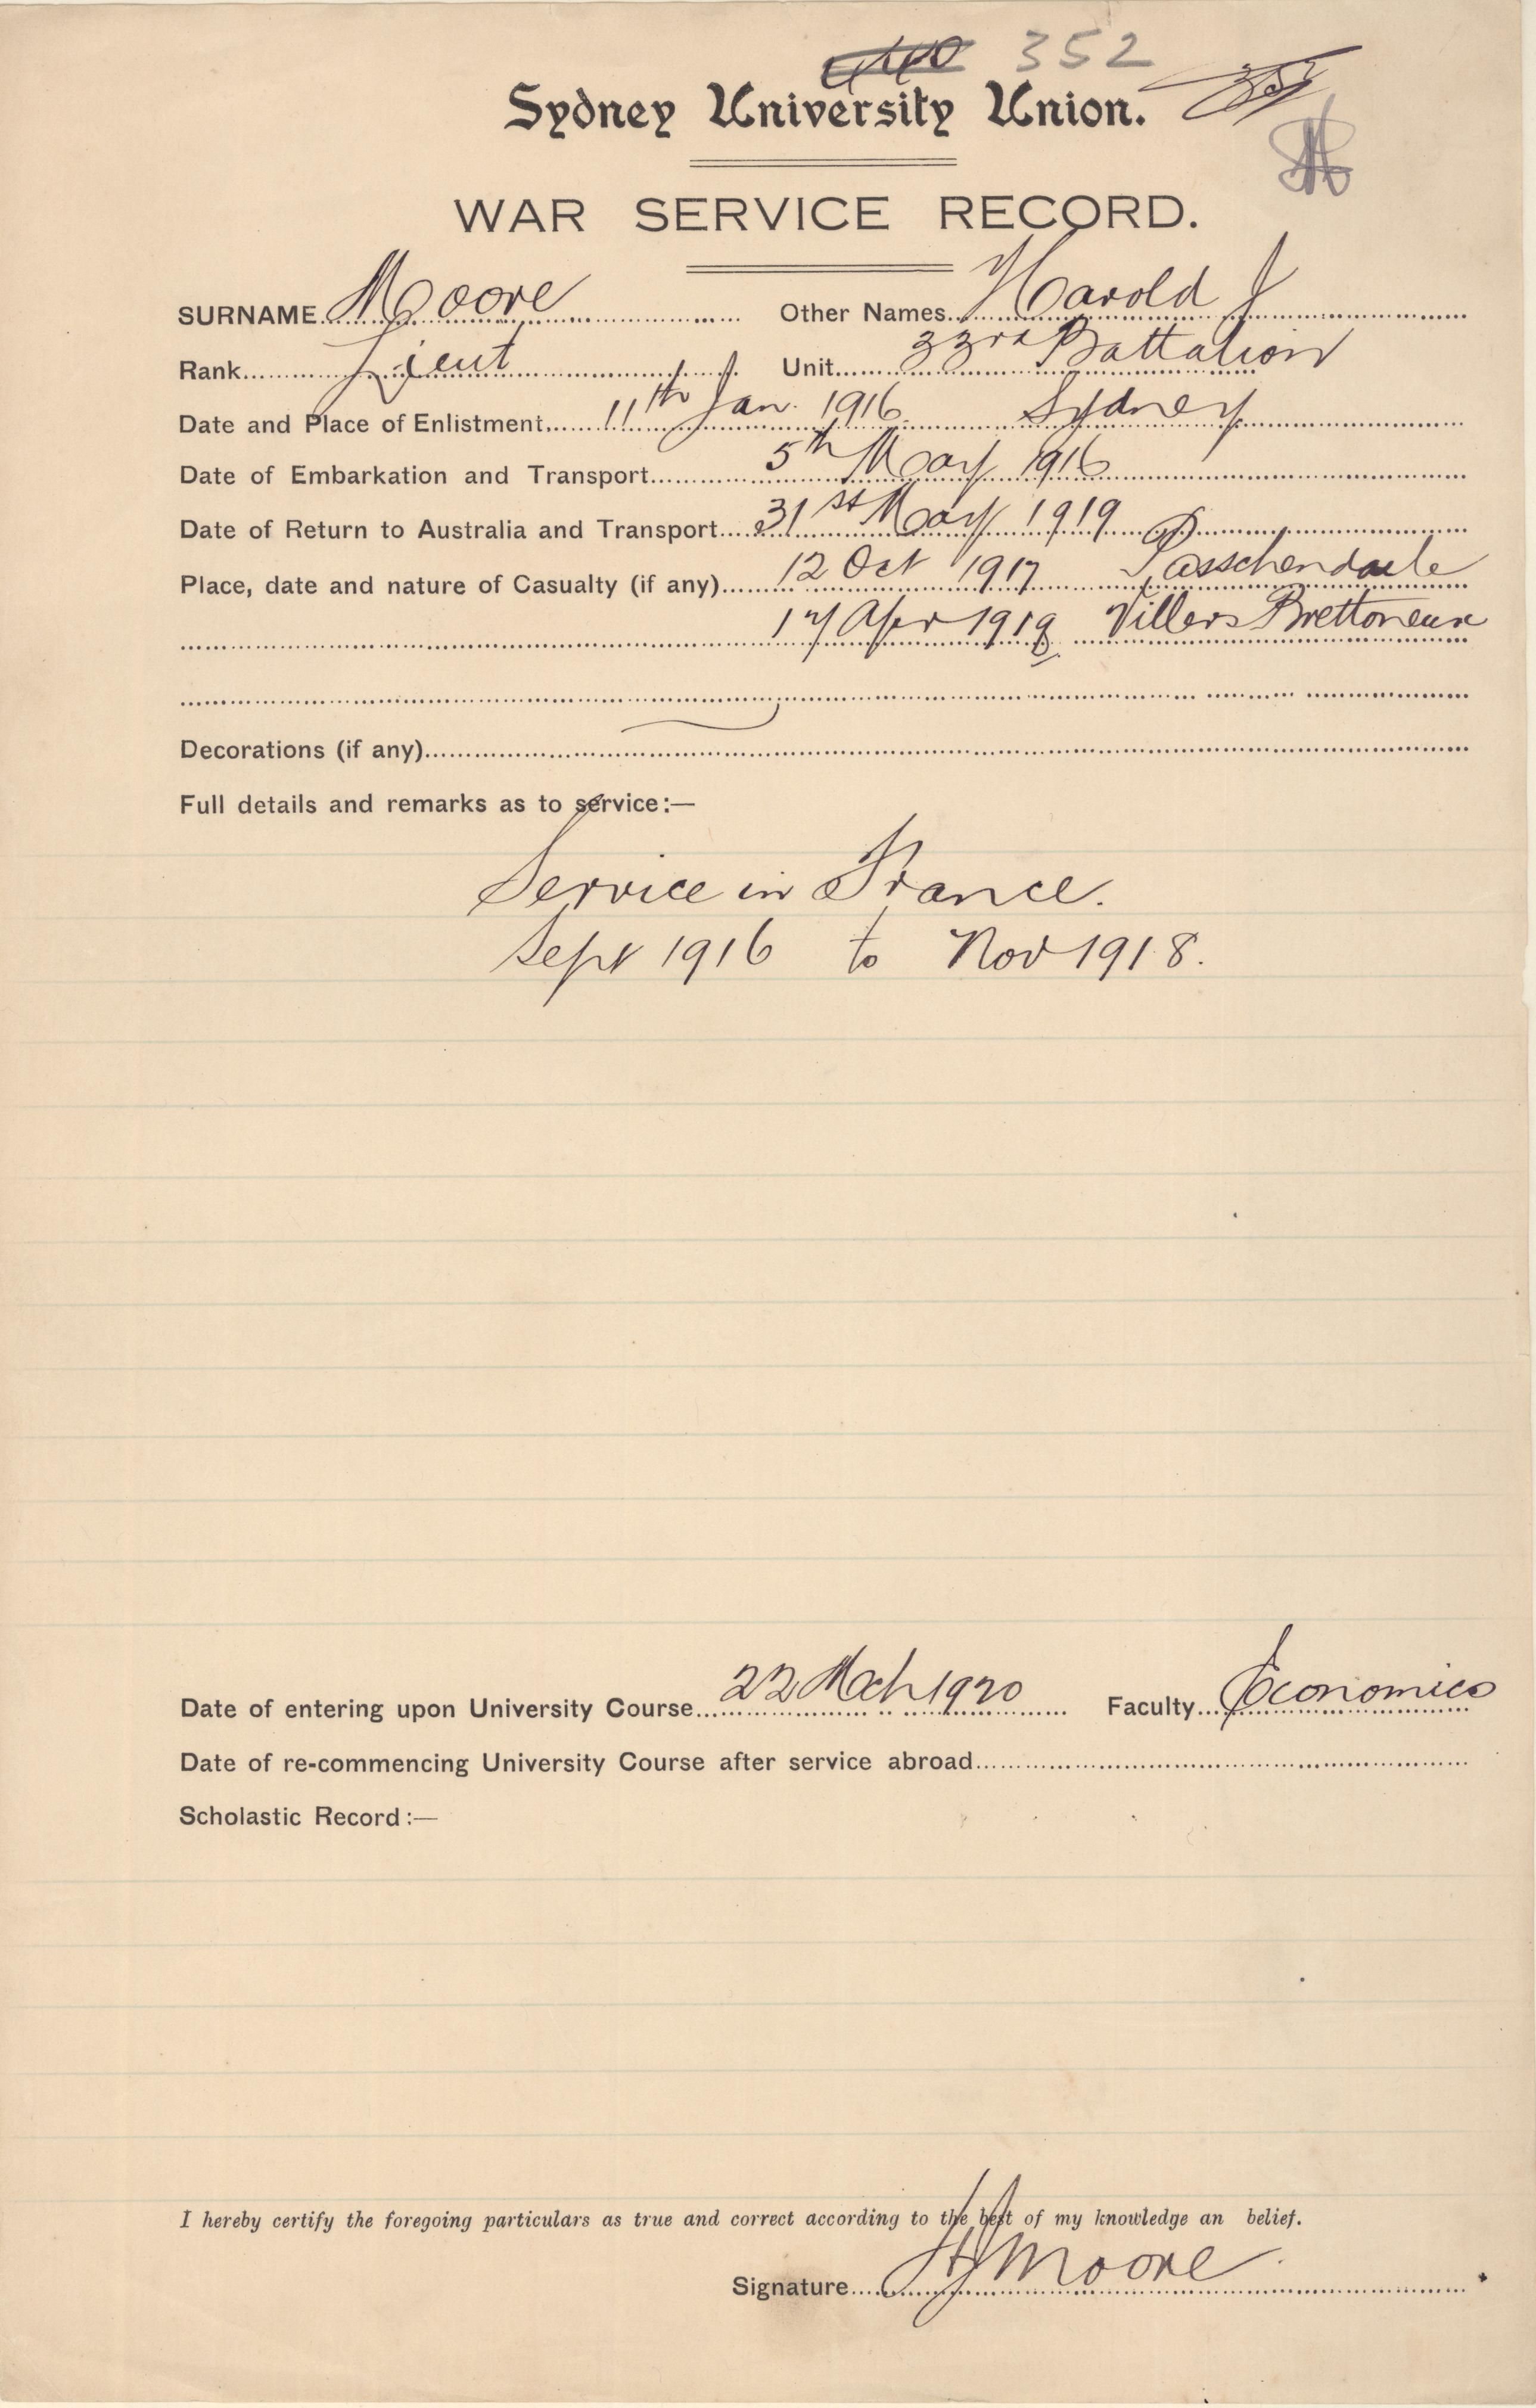 352
Sydney University Union.
WAR SERVICE RECORD.
SURNAME Moore Other Names Harold J
Rank Lieut Unit 33rd Battalion
Date and Place of Enlistment 11th Jan. 1916. Sydney
Date of Embarkation and Transport 5th May 1916
Date of Return to Australia and Transport 31st May 1919
Place, date and nature of Casualty (if any) 12 Oct 1917 Passchendaele
17 Apr 1918 Villers Brettoneux
Decorations (if any)
Full details and remarks as to service:—
Service in France.
Sept 1916 to Nov 1918.
Date of entering upon University Course 22 Mch 1920 Faculty Economics
Date of re-commencing University Course after service abroad
Scholastic Record:—
I hereby certify the foregoing particulars as true and correct according to the best of my knowledge an belief.
Signature HJMoore